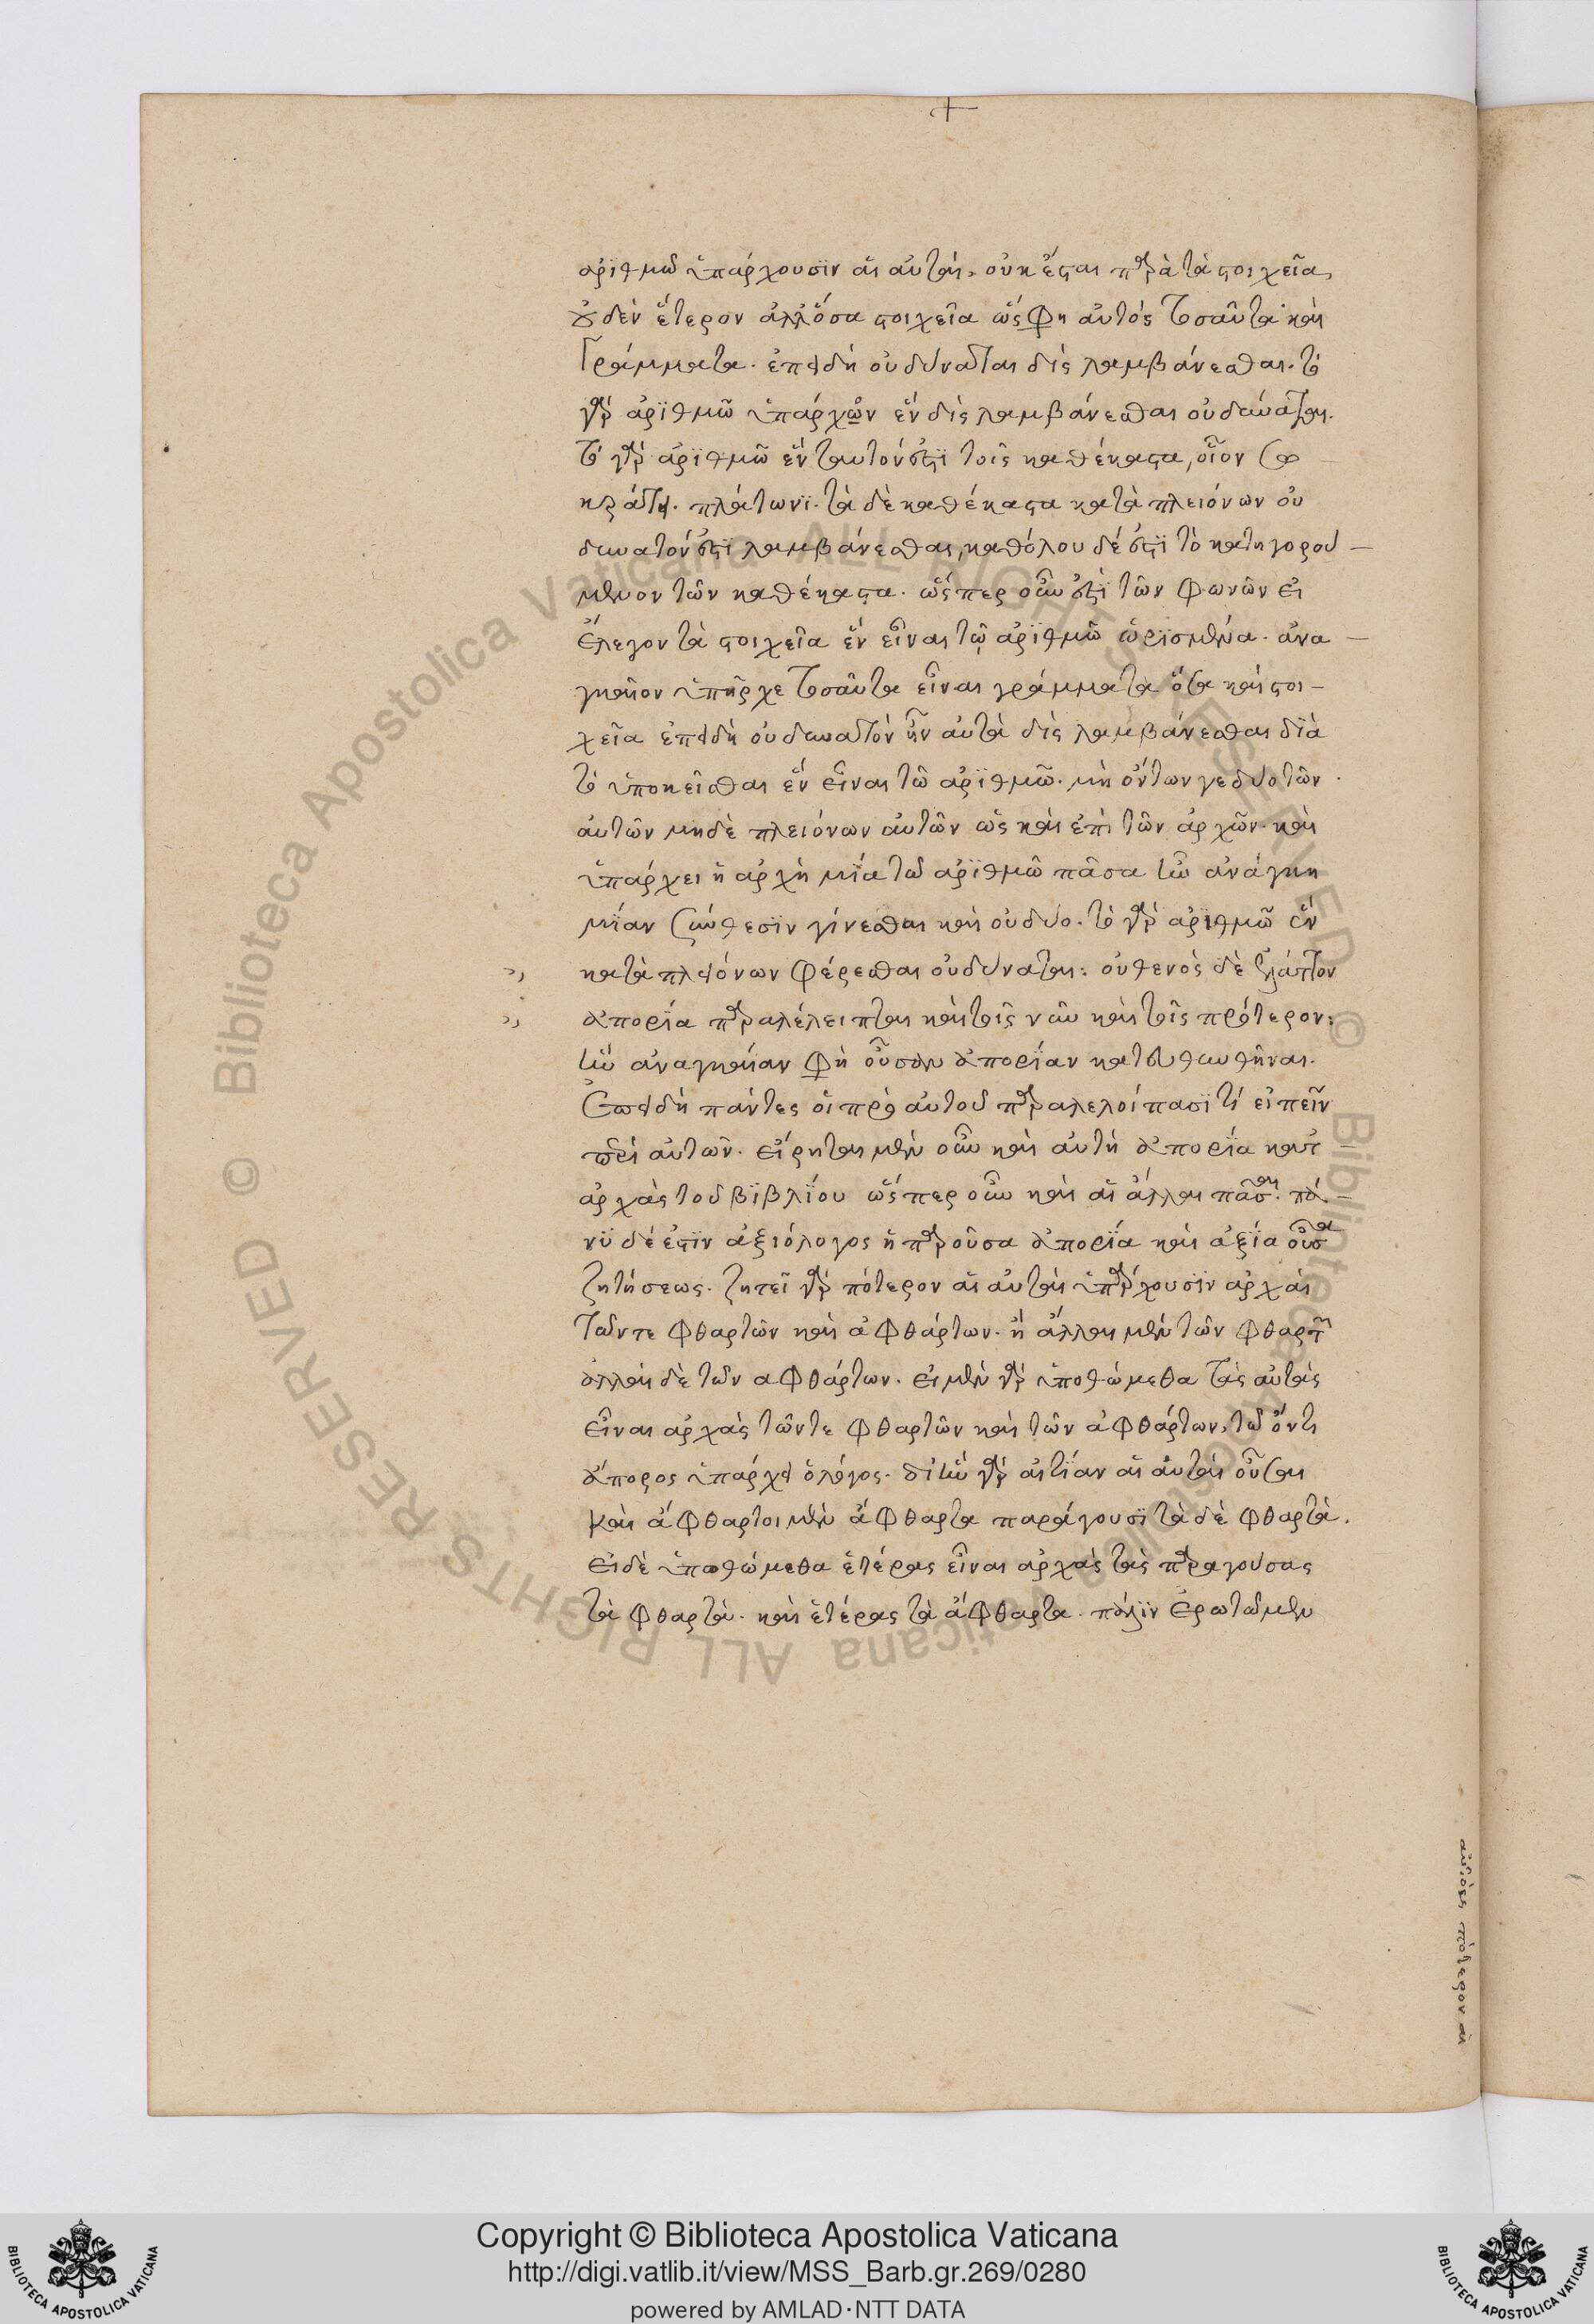 ἀρϊθμῶ ὑπάρχουσϊν αἱ αὐταί. οὐκ ἔσται παρὰ τὰ στοιχεῖα
οὐδὲν ἕτερον ἀλλ' ὅσα στοιχεῖα ὥς φη αὐτὸς τοσαῦτα καὶ
γράμματα. ἐπειδὴ οὐ δύναται δὶς λαμβάνεσθαι. τὸ
γὰρ ἀρϊθμῶ ὑπάρχον ἓν δὶς λαμβάνεσθαι οὐ δύναται.
τὸ γὰρ ἀρϊθμῶ ἓν ταυτόν ἐστϊ τοῖς καθέκαστα, οἷον Σω
κράτει. πλάτωνϊ. τὰ δὲ καθέκαστα κατὰ πλειόνων οὐ
δυνατόν ἐστϊ λαμβάνεσθαι, καθόλου δέ ἐστϊ τὸ κατηγορού –
μενον τῶν καθέκαστα. ὥσπερ οὖν ἐπὶ τῶν φωνῶν εἰ
ἔλεγον τὰ στοιχεῖα ἓν εἶναι τῷ ἀρϊθμῶ ὡρϊσμένα. ἀνα –
γκαῖον ὑπῆρχε τοσαῦτα εἶναι γράμματα ὅσα καὶ στοι –
χεῖα ἐπειδὴ οὐ δυνατὸν ἦν αὐτὰ δὶς λαμβάνεσθαι δϊὰ
τὸ ὑποκεῖσθαι ἓν εἶναι τῶ ἀρϊθμῶ. μὴ ὄντων γε δύο τῶν
αὐτῶν μηδὲ πλειόνων αὐτῶν ὡς καὶ ἐπὶ τῶν ἀρχῶν. καὶ
ὑπάρχει ἡ ἀρχὴ μϊα τῶ ἀρϊθμῶ πᾶσα τὴν ἀνάγκη
μϊαν σύνθεσϊν γίνεσθαι καὶ οὐ δύο. τὸ γὰρ ἀρϊθμῶ ἓν
κατὰ πλειόνων φέρεσθαι οὐ δύναται: οὐθενὸς δὲ ἐλάττον
ἀπορϊα παραλέλειπται καὶ τοῖς νῦν καὶ τοῖς πρότερον:
τὴν ἀναγκαίαν φὴ οὖσαν ἀπορϊαν κατευθυνθῆναι.
ἐπειδὴ πάντες οἱ πρὸ αὐτοῦ παραλελοίπασϊ τί εἰπεῖν
περὶ αὐτῶν. εἴρηται μὲν οὖν καὶ αὐτὴ ἀπορϊα κατ'
ἀρχὰς τοῦ βϊβλϊου ὥσπερ οὖν καὶ αἱ ἄλλαι πᾶσαι. πά –
νϋ δέ ἐστϊν ἀξιόλογος ἡ παροῦσα ἀπορϊα καὶ ἀξϊα οὖσα
ζητήσεως. ζητεῖ γὰρ πότερον αἱ αὐταὶ ὑπάρχουσϊν ἀρχαὶ
τῶν τε φθαρτῶν καὶ ἀφθάρτων. ἢ ἄλλαι μὲν τῶν φθαρτῶν
ἄλλαι δὲ τῶν ἀφθάρτων. εἰ μὲν γὰρ ὑποθώμεθα τὰς αὐτὰς
εἶναι ἀρχὰς τῶν τε φθαρτῶν καὶ τῶν ἀφθάρτων, τῶ ὄντι
ἄπορος ὑπάρχει ὁ λόγος. δι' ἣν γὰρ αἰτίαν αἱ αὐταὶ οὖσαι
καὶ ἄφθαρτοι μὲν ἄφθαρτα παράγουσϊ τὰ δὲ φθαρτὰ.
εἰ δὲ ὑποθώμεθα ἑτέρας εἶναι ἀρχὰς τὰς παραγούσας
τὰ φθαρτὰ. καὶ ἑτέρας τὰ ἄφθαρτα. πάλϊν ἐρωτῶμεν
πότερον αἱ
Copyright © Biblioteca Apostolica Vaticana
http://digi.vatlib.it/view/MSS_Barb.gr.269/0280
powered by AMLAD·NTT DATA
BIBLIOTECA APOSTOLICA VATICANA
BIBLIOTECA APOSTOLICA VATICANA
© Biblioteca Apostolica Vaticana ALL RIGHTS RESERVED
© Biblioteca Apostolica Vaticana ALL RIGHTS RESERVED